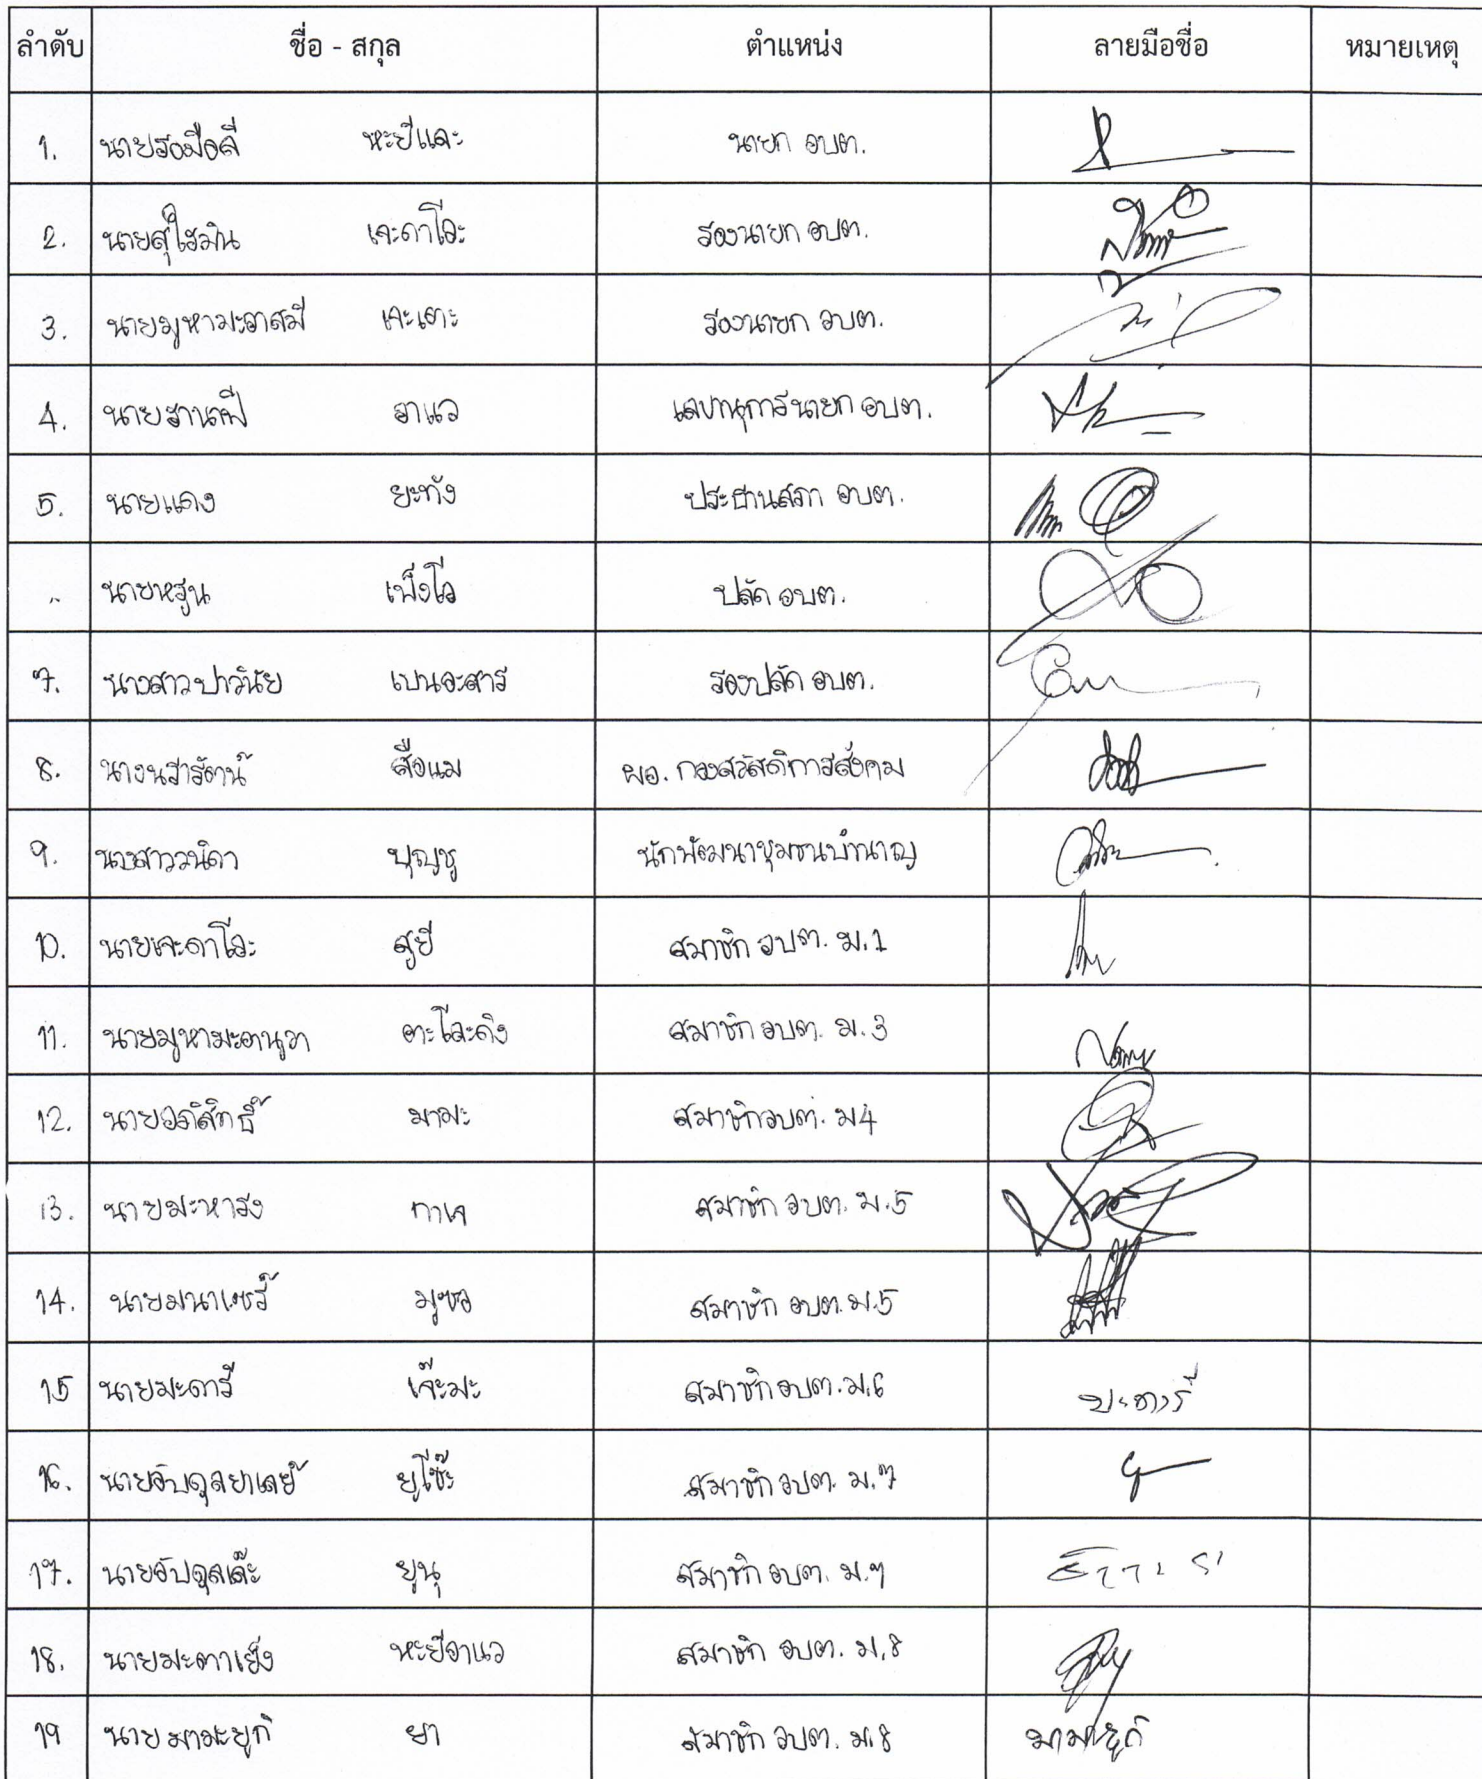 ลำดับ ชื่อ - สกุล ตำแหน่ง ลายมือชื่อ หมายเหตุ
1. นายรอมือลี หะยีแตะ นายก อบต.
2. นายสุไฮมิน เจะดาโอะ รองนายก อบต.
3. นายมูหามะอาสมี เจะเตะ รองนายก อบต.
4. นายฮานาฟี อาแว เลขานุการนายก อบต.
5. นายแดง ยะทัง ประธานสภา อบต.
นายหรูน เพ็งโอ ปลัด อบต.
7. นางสาวปาวีนัย เบนอะสาร รองปลัด อบต.
8. สือแม ผอ. กองสวัสดิการสังคม
9. นางสาววนิดา บุญชู นักพัฒนาชุมชนชำนาญ
10. นายเจะดาโอะ สูยี สมาชิก อบต. ม.1
11. นายมูหามะอานูวา ตะโละดิง สมาชิก อบต. ม.3
12. นายอภิสิทธิ์ มามะ สมาชิกอบต. ม4
13. นายมะหารง กาเจ สมาชิก อบต. ม.5
14. นายมนาเซร์ มูซอ สมาชิก อบต. ม.5
15 นายมะดารี เจ๊ะมะ สมาชิก อบต. ม.6 มะดารี
16. นายอับดุลยาเลย์ ยูโซ๊ะ สมาชิก อบต. ม.7
17. นายอับดุลเล๊าะ ยูนุ สมาชิก อบต. ม.7
18. นายมะตาเย็ง หะยีอาแว สมาชิก อบต. ม.8
19 นายมามะยูกี ยา สมาชิก อบต. ม.8 มามะยูกี